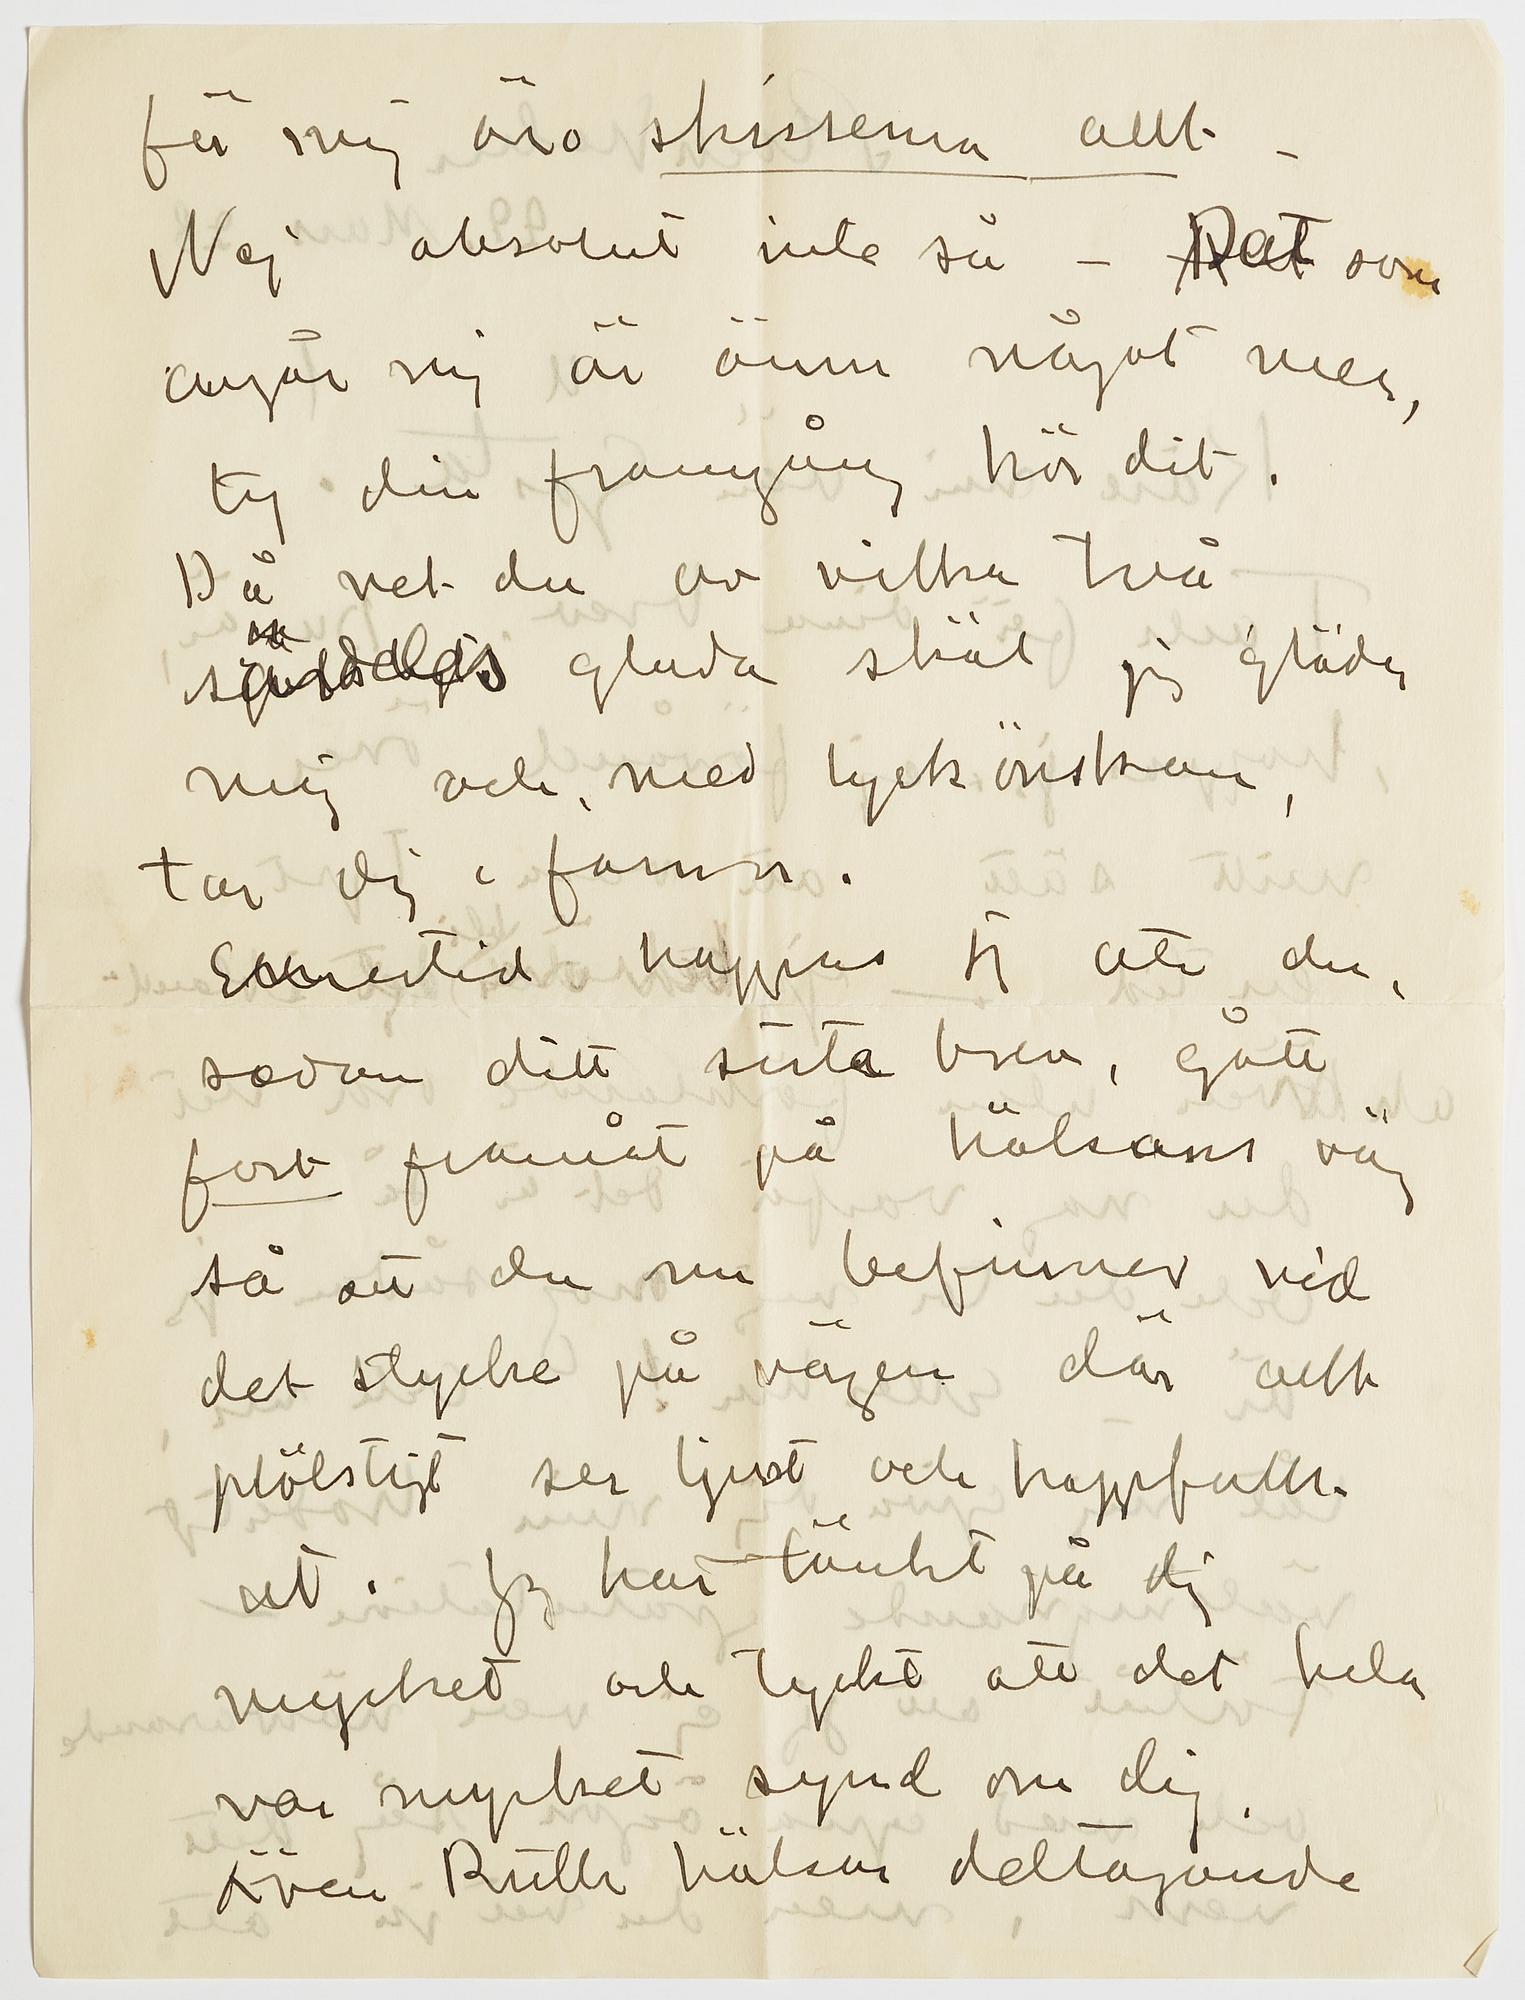 för mig äro skisserna allt –
Nej absolut inte så – Det som
angår mig är ännu något mer,
ty din framgång hör dit.
Då vet du av vilka två
glada skäl jag gläder
mig och, med lyckönskan,
tar dig i famn.
Emellertid hoppas jag att du,
sedan ditt sista brev, gått
fort framåt på hälsans väg
så att du nu befinner vid
det stycke på vägen där allt
plötsligt ser ljust och hoppfullt
ut. Jag har tänkt på dig
mycket och tyckt att det hela
var mycket synd om dig.
Även Ruth hälsar deltagande